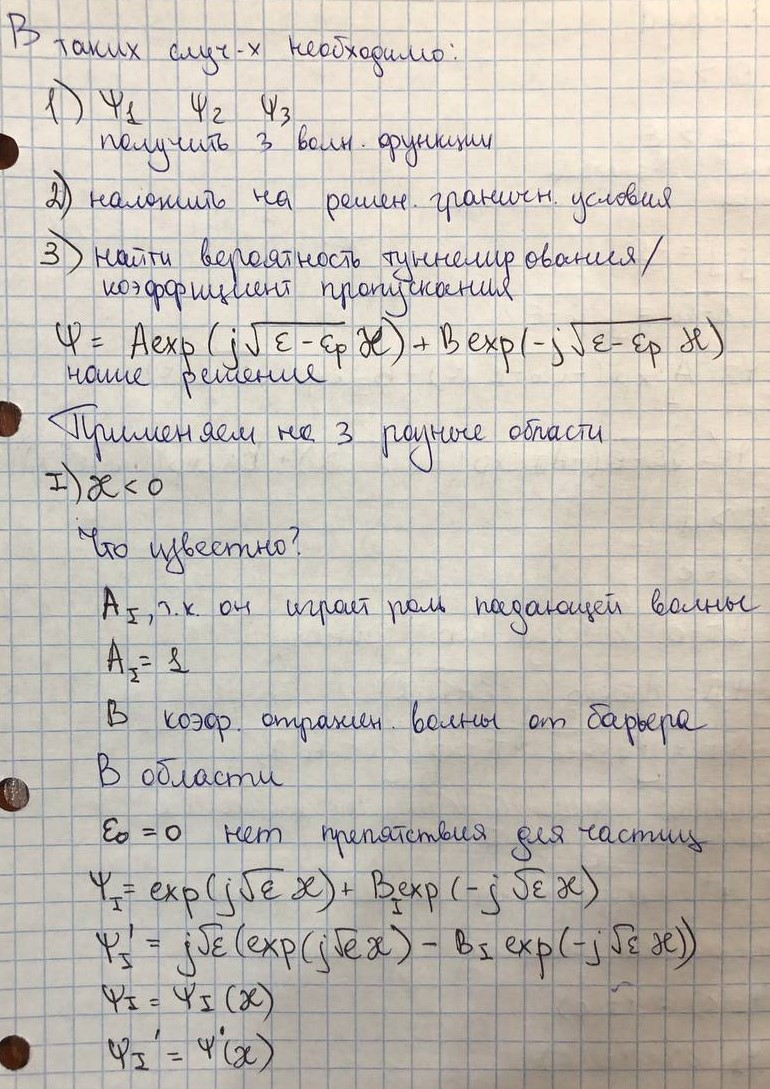 В таких случ-х необходимо:
1) Ψ1 Ψ2 Ψ3
получить 3 волн. функции
2) наложить на решен. граничн. условия
3) найти вероятность туннелирования/
коэффициент пропускания
Ψ = A exp (j√(ε-εp) x) + B exp(-j√(ε-εp) x)
наше решение
Применяем на 3 разные области
I) x < 0
Что известно?
A_I, т.к. он играет роль падающей волны
A_I = 1
B коэф. отражен. волны от барьера
В области
ε0 = 0 нет препятствия для частиц
Ψ_I = exp(j√ε x) + B_I exp(-j√ε x)
Ψ_I' = j√ε (exp(j√ε x) - B_I exp(-j√ε x))
Ψ_I = Ψ_I (x)
Ψ_I' = Ψ'(x)